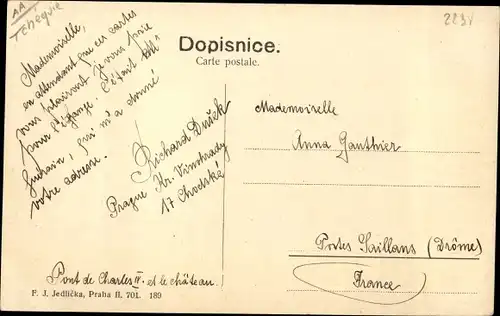 AA
Tchéquie
2234
Dopisnice.
Carte postale.
Mademoiselle,
en attendant que ces cartes
vous plairont je vous prie
pour l'échange. C'était Mll
qui m'a donné
votre adresse.
Richard Dušek
Prague Kr. Vinohrady
17 Chodská
Mademoiselle
Anna Gauthier
Portes Saillans (Drôme)
France
Pont de Charles IV. et le château.
F. J. Jedlička, Praha II. 701. 189